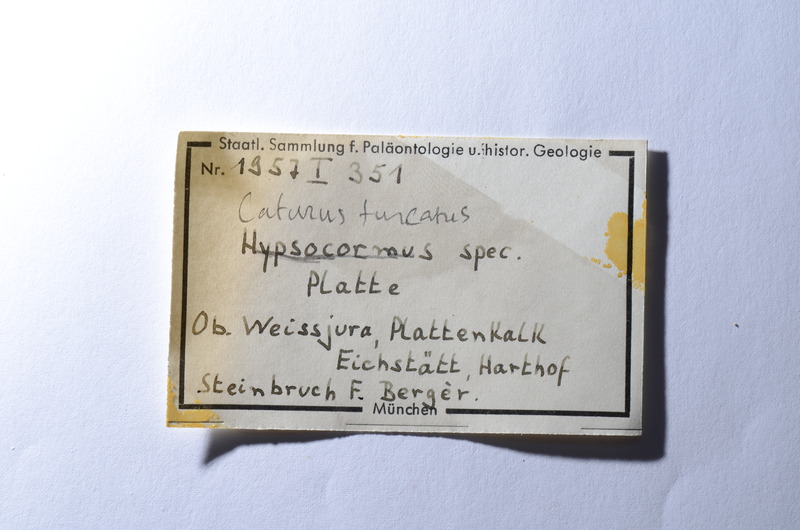 Staatl. Sammlung f. Paläontologie u. histor. Geologie
Nr. 1957 I 351
Caturus furcatus
Hypsocormus spec.
Platte
Ob. Weissjura, Plattenkalk
Eichstätt, Harthof
Steinbruch F. Bergèr.
München